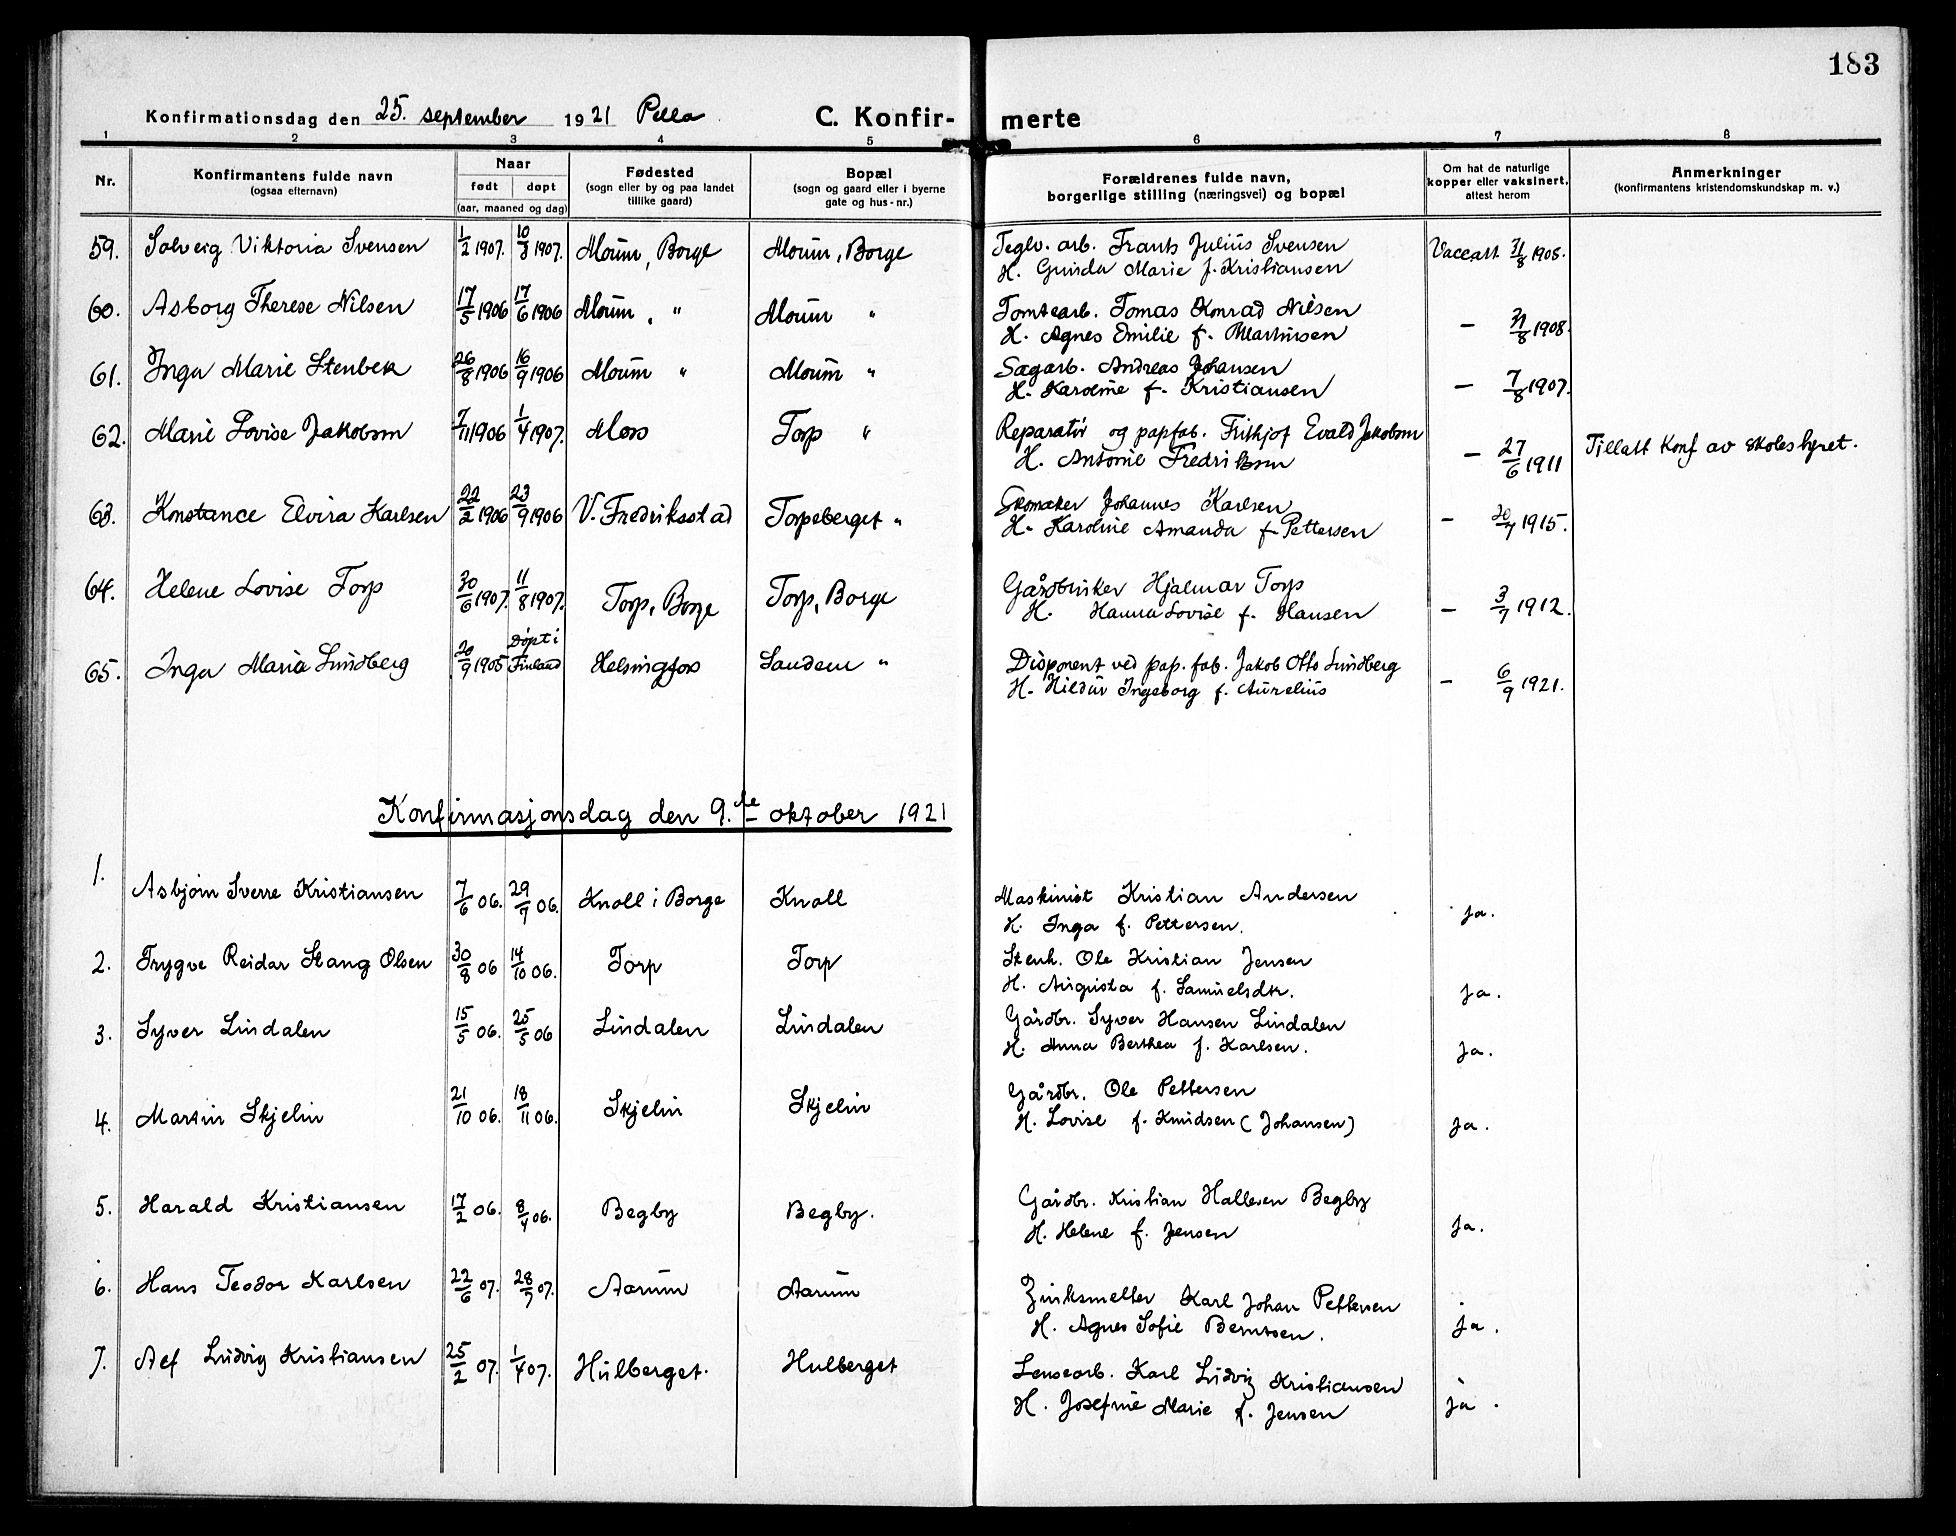 183
Konfirmationsdag den 25. september 1921 Pella C. Konfir- merte
1 2 3 4 5 6 7 8
Nr. Konfirmantens fulde navn (ogsaa efternavn) Naar født døpt (aar, maaned og dag) Fødested (sogn eller by og paa landet tillike gaard) Bopæl (sogn og gaard eller i byerne gate og hus-nr.) Forældrenes fulde navn, borgerlige stilling (næringsvei) og bopæl Om hat de naturlige kopper eller vaksinert, attest herom Anmerkninger (konfirmantens kristendomskundskap m. v.)
59. Solveig Viktoria Svensen 1/2 1907. 10/3 1907. Moum, Borge Moum, Borge Teglv. arb. Frants Julius Svensen Vacc.att 31/8 1908.
H. Gunda Marie f. Kristiansen
60. Asborg Therese Nilsen 17/5 1906 17/6 1906 Moum, " Moum " Tomtearb. Tomas Konrad Nilsen
H. Agnes Emilie f. Martinsen — 31/8 1908.
61. Inga Marie Stenbek 26/8 1906 16/9 1906 Moum " Moum " Sagarb. Andreas Johansen
H. Karoline f. Kristiansen — 7/8 1907.
62. Marie Lovise Jakobsen 7/11 1906 1/4 1907. Moss Torp " Reparatør og papfab. Fritkjof Evald Jakobsen
H. Antonie Fredriksen — 27/6 1911 Tillatt konf av skolestyret.
63. Konstance Elvira Karlsen 22/2 1906 23/9 1906 V. Fredriksstad Torpeberget " Skomaker Johannes Karlsen
H. Karoline Amanda f. Pettersen — 20/7 1915.
64. Helene Lovise Torp 30/6 1907. 11/8 1907. Torp, Borge Torp, Borge Gårdbruker Hjalmar Torp
H. Hanna Lovise f. Hansen — 3/7 1912.
65. Inga Maria Lindberg 20/9 1905 Døpt i Finland Helsingfos Sandem " Disponent ved pap. fab. Jakob Otto Lindberg
H. Hildur Ingeborg f. Aurelius — 6/9 1921.
Konfirmasjonsdag den 9.de oktober 1921
1. Asbjørn Sverre Kristiansen 7/6 06. 29/7 06. Knoll i Borge Knoll Maskinist Kristian Andersen
H. Inga f. Pettersen. ja.
2. Trygve Reidar Stang Olsen 30/8 06 14/10 06. Torp Torp Stenh. Ole Kristian Jensen
H. Augusta f. Samuelsdtr. ja.
3. Syver Lindalen 15/5 06. 25/5 06 Lindalen Lindalen Gårdbr. Syver Hansen Lindalen
H. Anna Berthea f. Karlsen. ja.
4. Martin Skjelin 21/10 06. 18/11 06. Skjelin Skjelin Gårdbr. Ole Pettersen
H. Lovise f. Knudsen (Johansen) ja.
5. Harald Kristiansen 17/2 06. 8/4 06. Begby Begby. Gårdbr. Kristian Hallesen Begby
H. Helene f. Jensen ja.
6. Hans Teodor Karlsen 22/6 07. 28/7 07. Aarum Aarum Zinksmelter Karl Johan Pettersen
H. Agnes Sofie Berntsen. ja.
7. Alf Ludvig Kristiansen 25/2 07. 1/4 07. Hulberget. Hulberget Lensearb. Karl Ludvig Kristiansen
H. Josefine Marie f. Jensen ja.